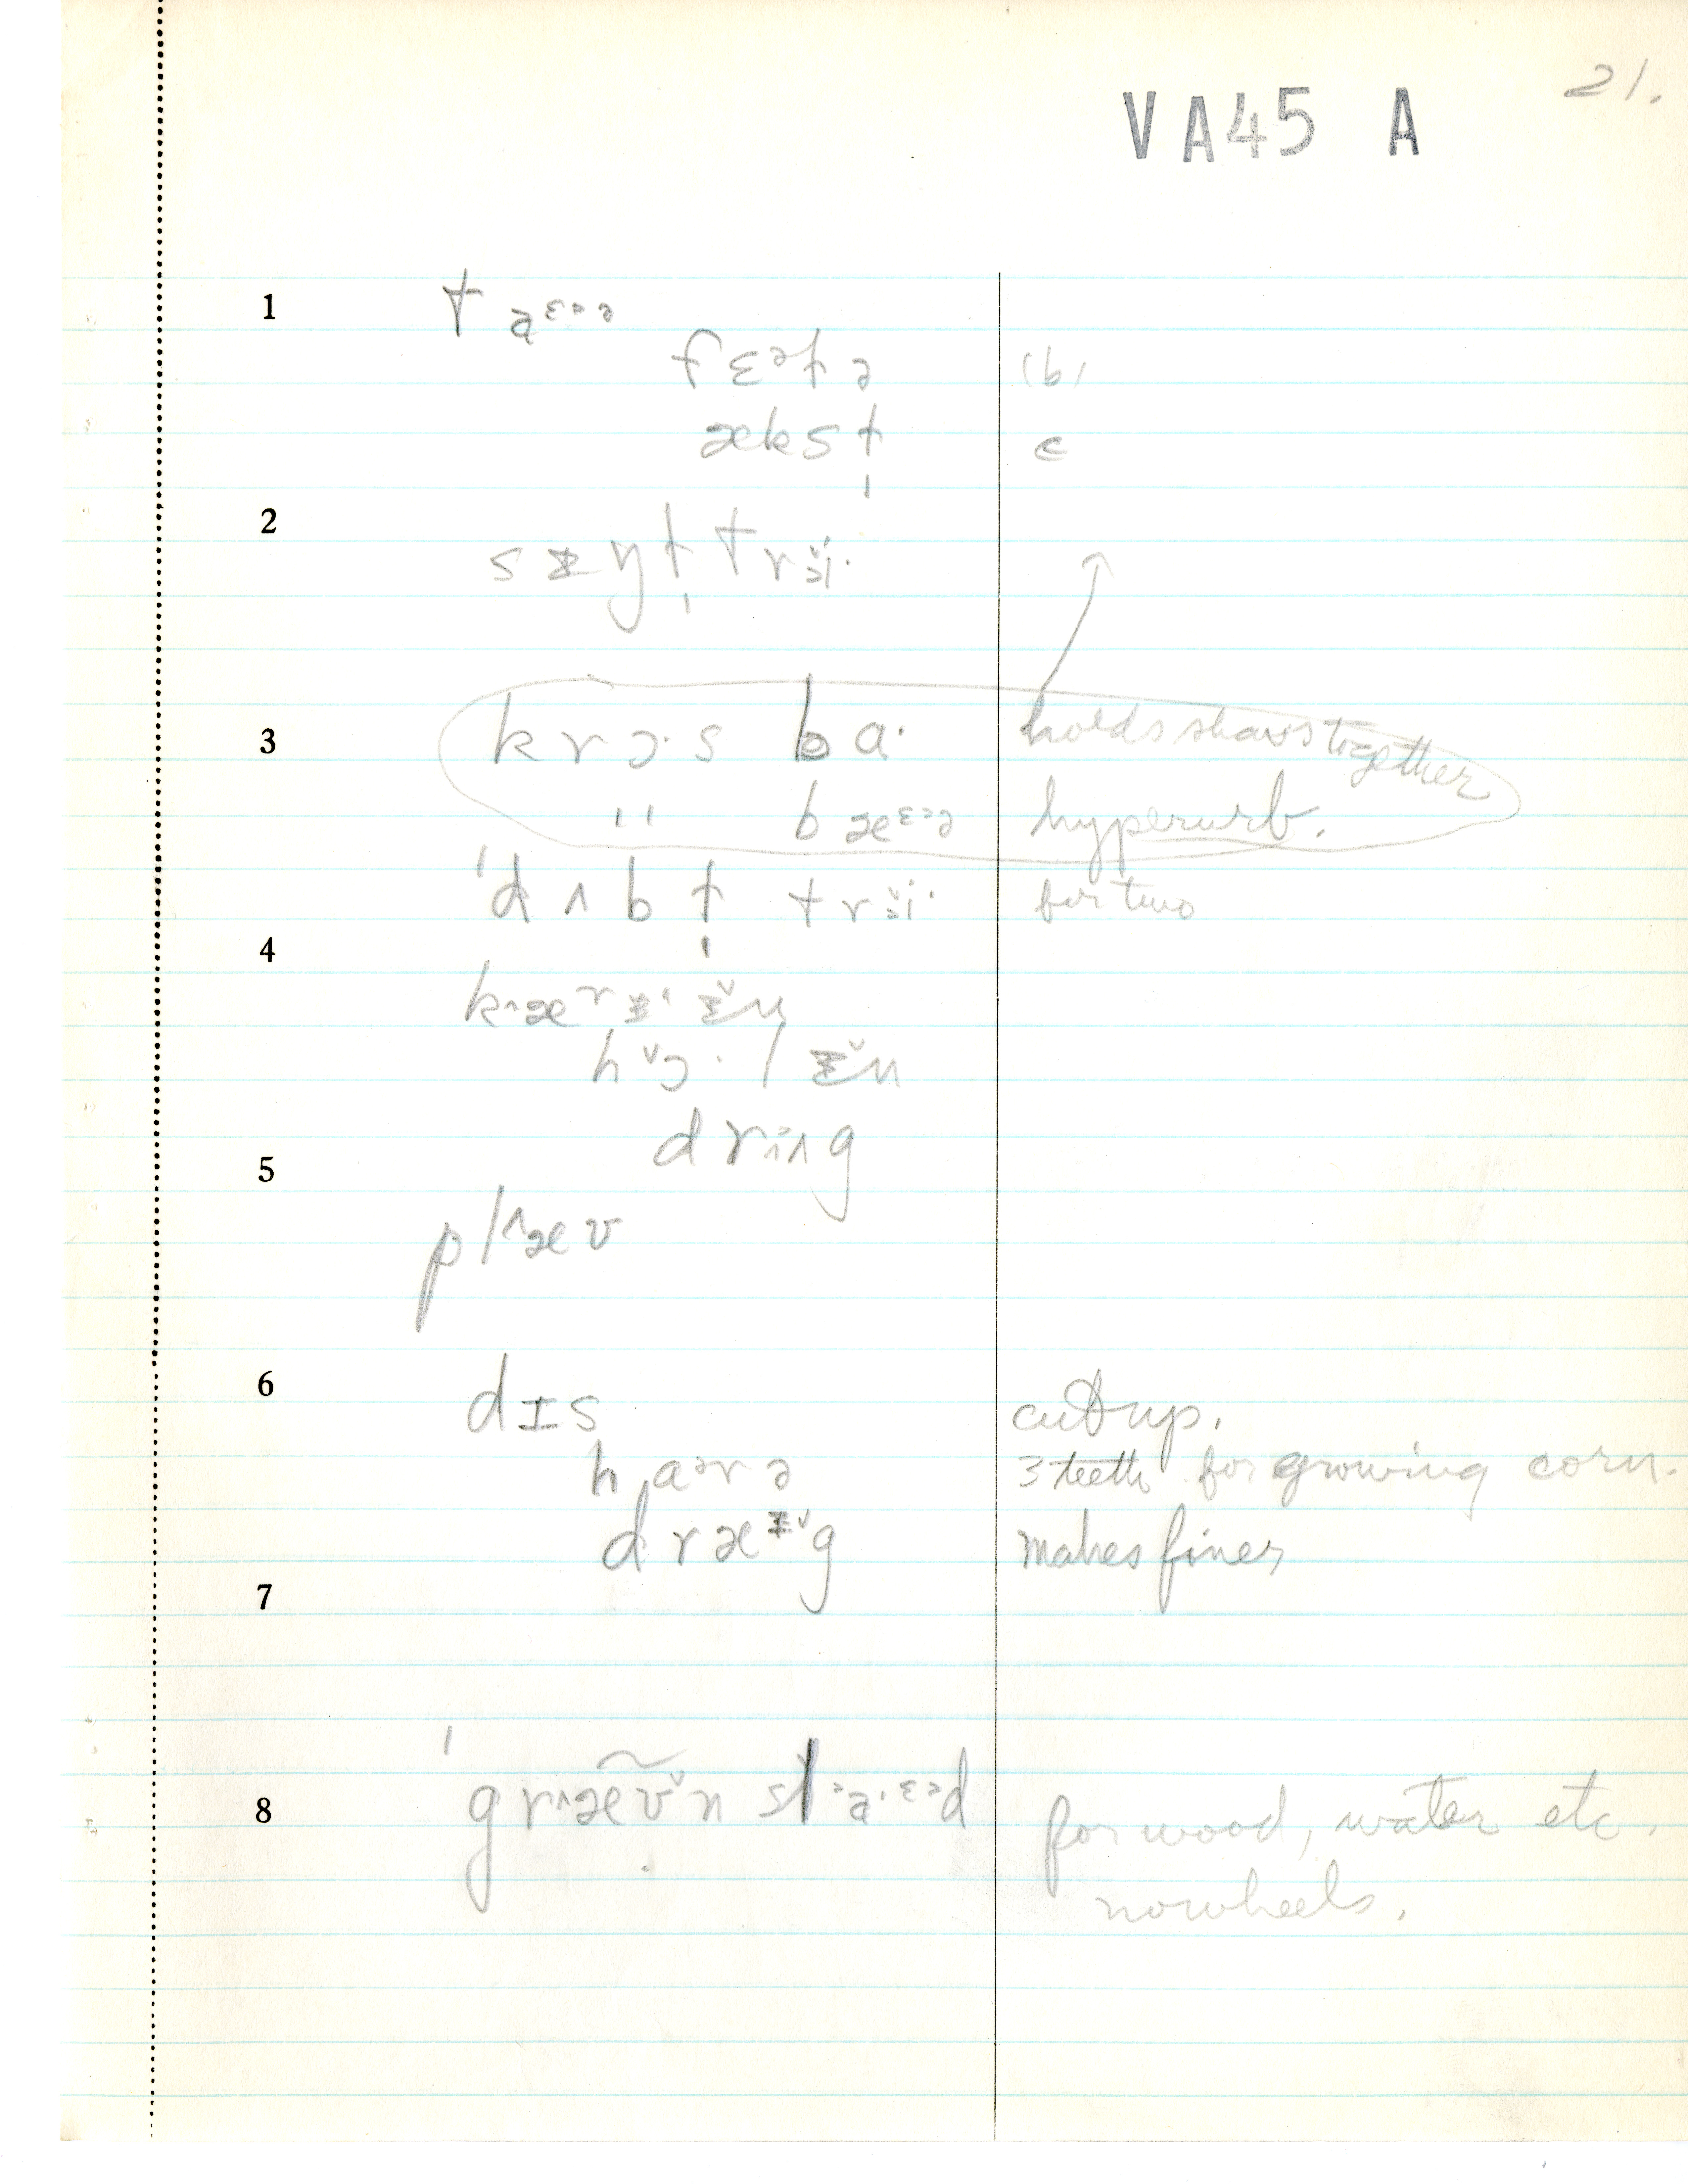 21.
VA45 A
1 t aᵋᵊᵊ
fɛᵊt̬ə (b)
æks t̩ c
2 s ɪ ŋ t̩ trɨi·
3 krɔ·s ba· holds shavs together
" bæᵋᵊᵊ hyperurb.
ˈd ʌ b t̩ trɨi· for two
4 k^ærɪ ɪ̆n
h ɔ· l ɪ̆n
dring
5 pl^æʊ
6 dɪs cut up.
harə 3 teeth for growing corn.
dræɪ̆g makes finer
7
8 ˈgr^æ̃ʊ̃n sl aᵋᵊd for wood, water etc.
no wheels.